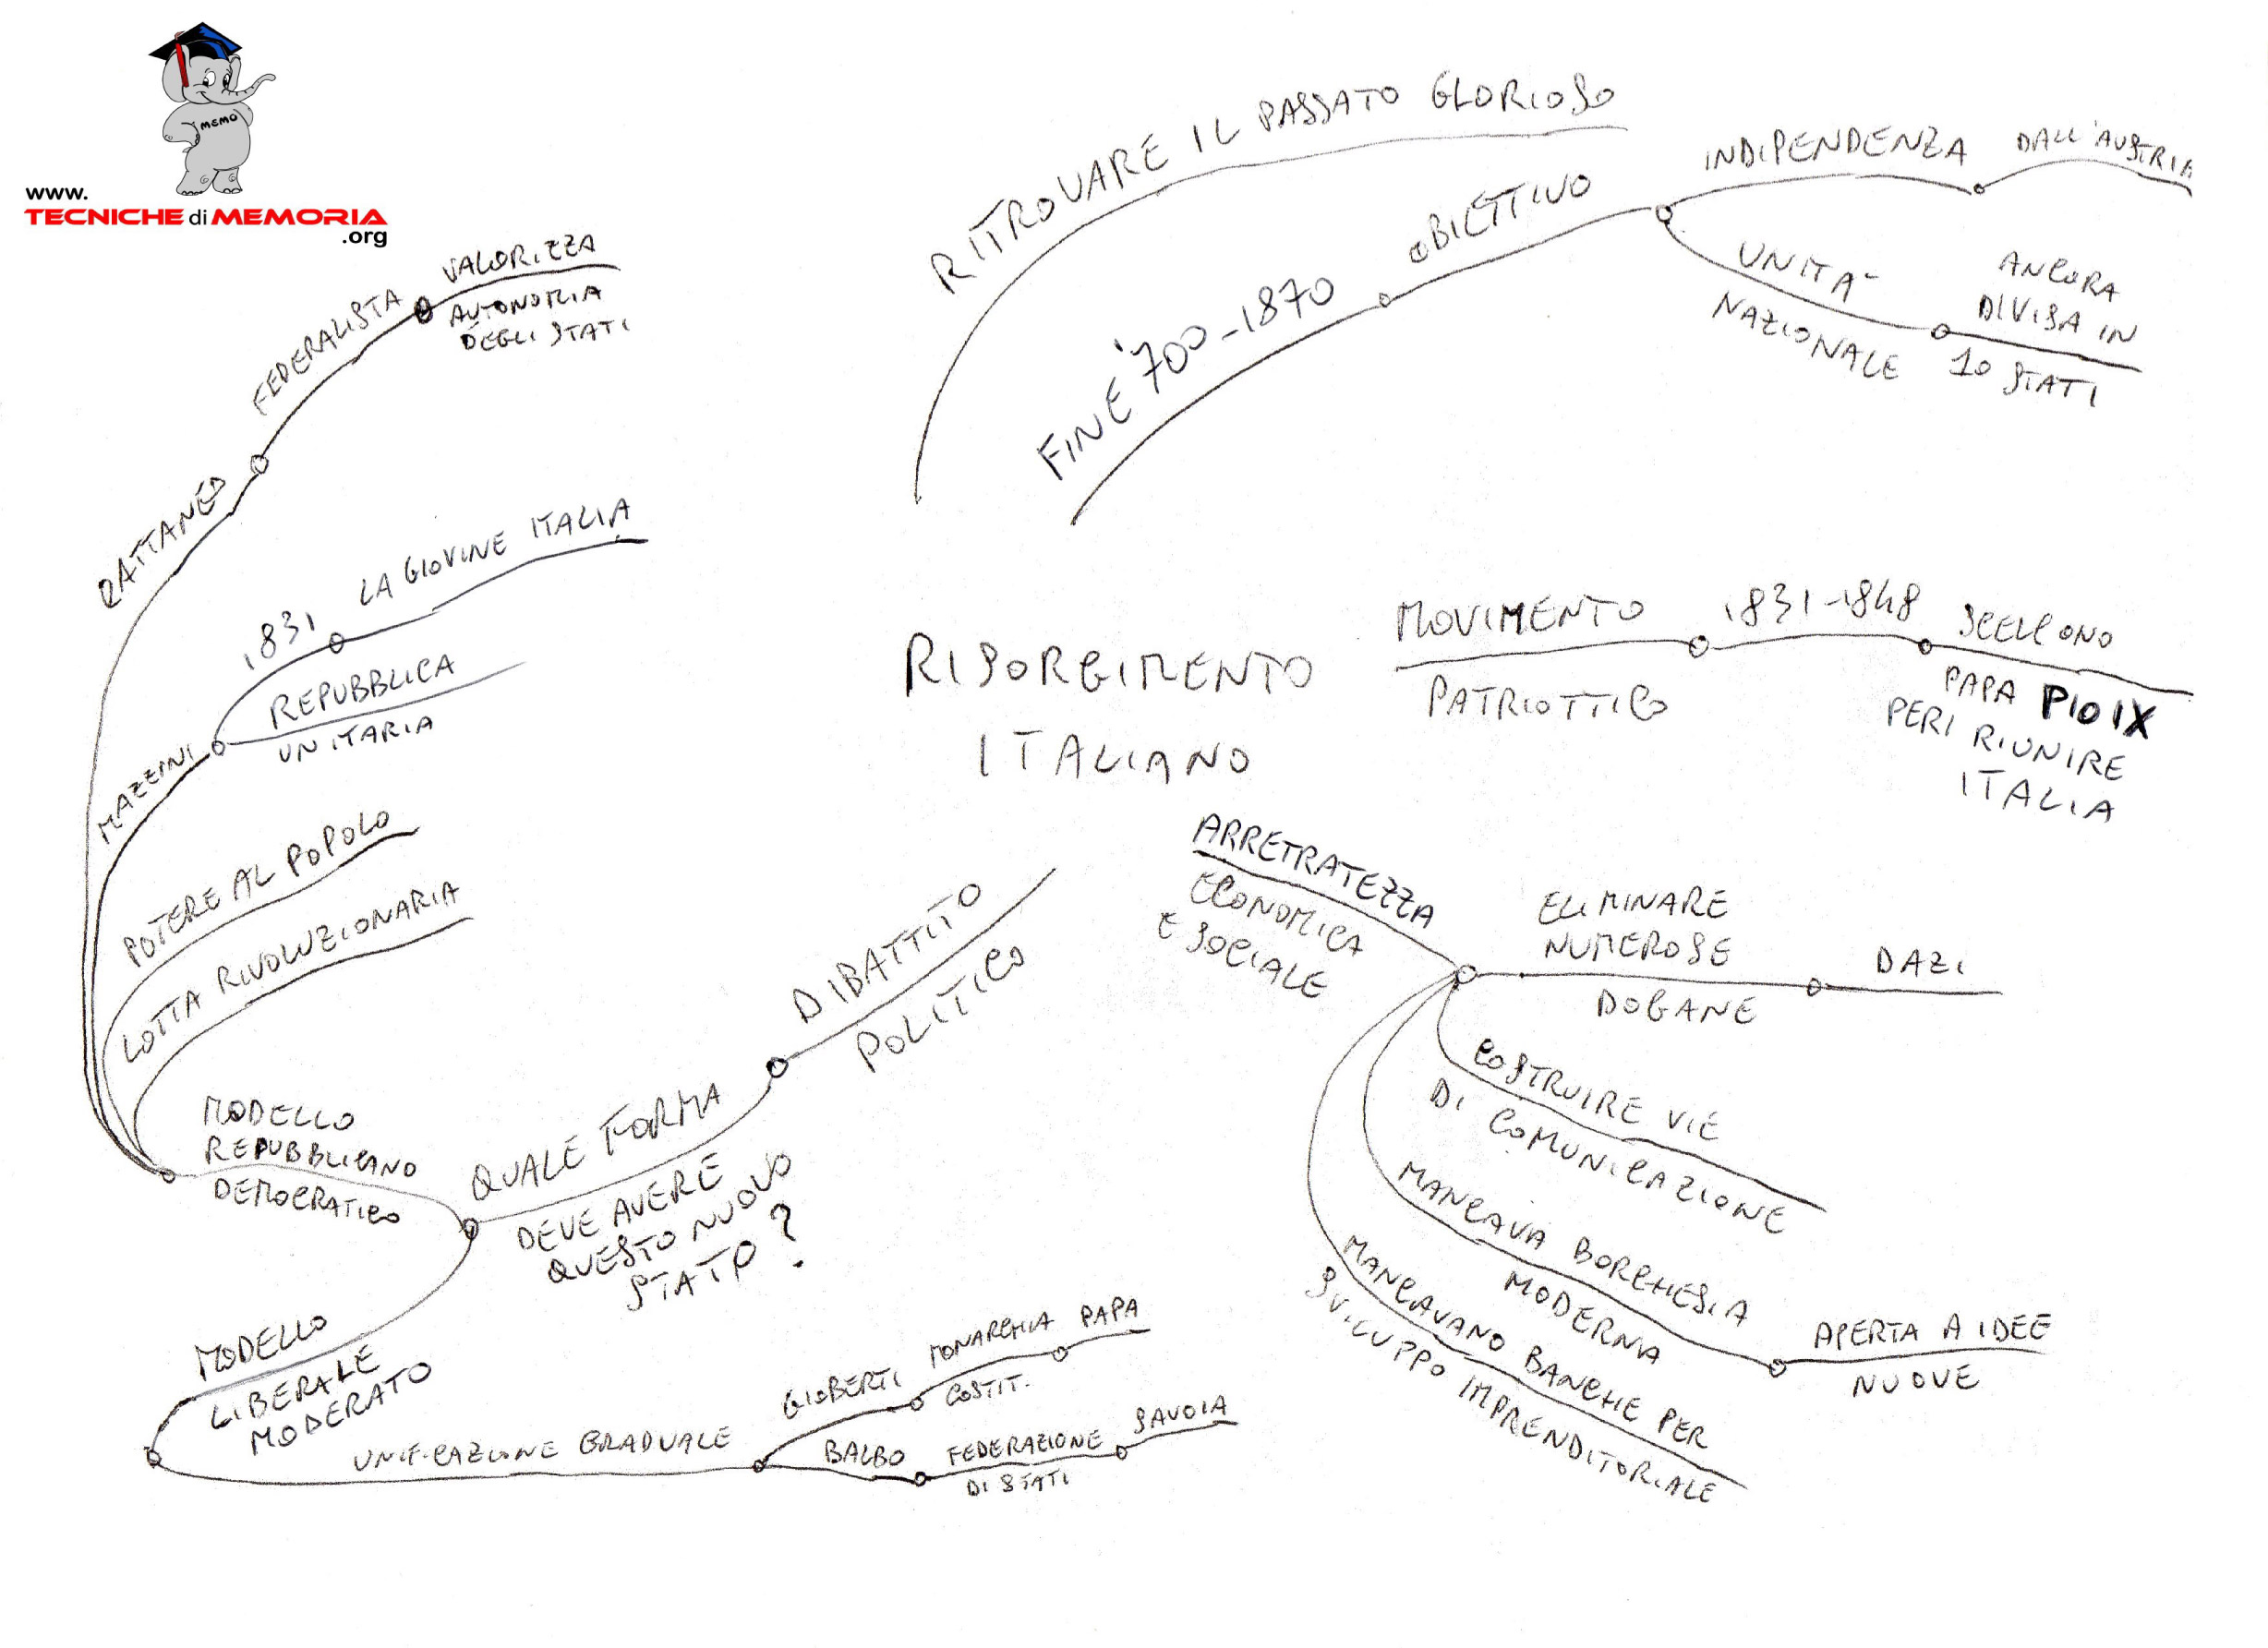 MEMO
www.
TECNICHE di MEMORIA
.org
RITROVARE IL PASSATO GLORIOSO
FINE '700-1870
OBIETTIVO
INDIPENDENZA
DALL'AUSTRIA
UNITA'
NAZIONALE
ANCORA
DIVISA IN
10 STATI
FEDERALISTA
VALORIZZA
AUTONOMIA
DEGLI STATI
CATTANEO
1831
LA GIOVINE ITALIA
MAZZINI
REPUBBLICA
UNITARIA
POTERE AL POPOLO
LOTTA RIVOLUZIONARIA
RISORGIMENTO
ITALIANO
MOVIMENTO
PATRIOTTICO
1831-1848
SCELGONO
PAPA PIO IX
PER RIUNIRE
ITALIA
ARRETRATEZZA
ECONOMICA
E SOCIALE
ELIMINARE
NUMEROSE
DOGANE
DAZI
COSTRUIRE VIE
DI COMUNICAZIONE
MANCAVA BORGHESIA
MODERNA
APERTA A IDEE
NUOVE
MANCAVANO BANCHE PER
SVILUPPO IMPRENDITORIALE
DIBATTITO
POLITICO
QUALE FORMA
DEVE AVERE
QUESTO NUOVO
STATO?
MODELLO
REPUBBLICANO
DEMOCRATICO
MODELLO
LIBERALE
MODERATO
UNIFICAZIONE GRADUALE
GIOBERTI
MONARCHIA PAPA
COSTIT.
BALBO
FEDERAZIONE
DI STATI
SAVOIA